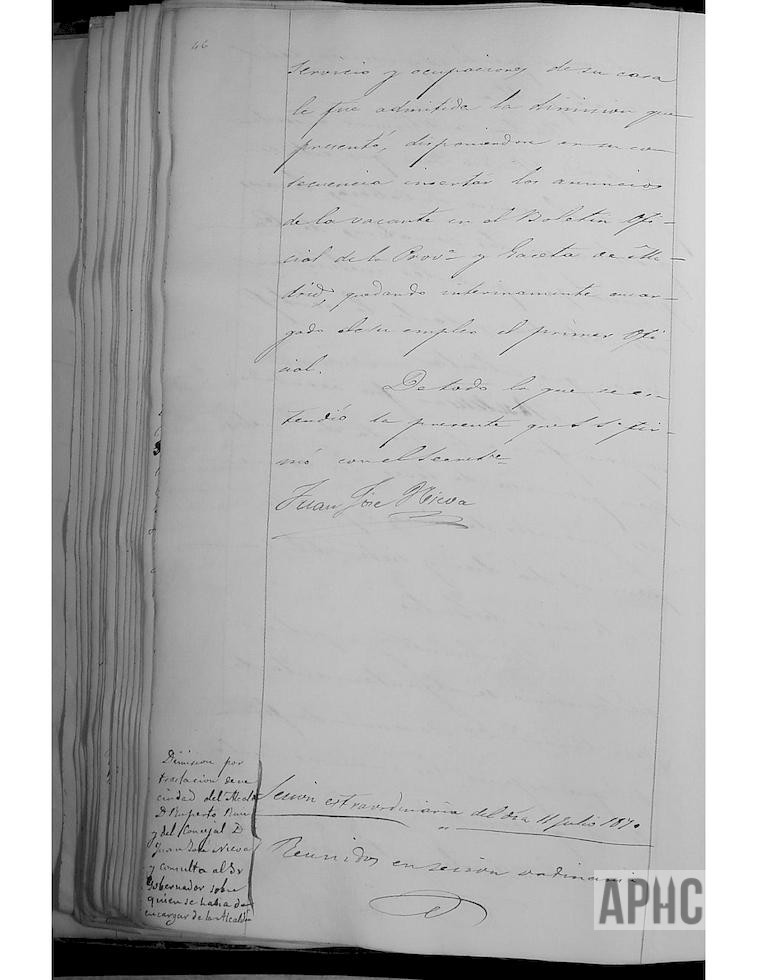 46
servicio y ocupaciones de su casa
le fue admitida la dimision que
presentó, disponiendose en su con
secuencia insertar los anuncios
de la vacante en el Boletin Ofi-
cial de la Provª y Gaceta de Ma-
drid, quedando interinamente encar-
gado de su empleo el primer Ofi
cial.
De todo lo que se es-
tendió la presente que S Sª fir-
mó con el Secretº
Juan José Nieva
Dimision por
traslacion de ve
cindad del Alcalde
D Ruperto
y del Concejal D
Juan José Nieva
y consulta al Sr
Gobernador sobre
quien se habia de
encargar de la Alcaldia
Sesion extraordinaria del dia 11 Julio 1870
Reunidos en sesion ordinaria
APHC